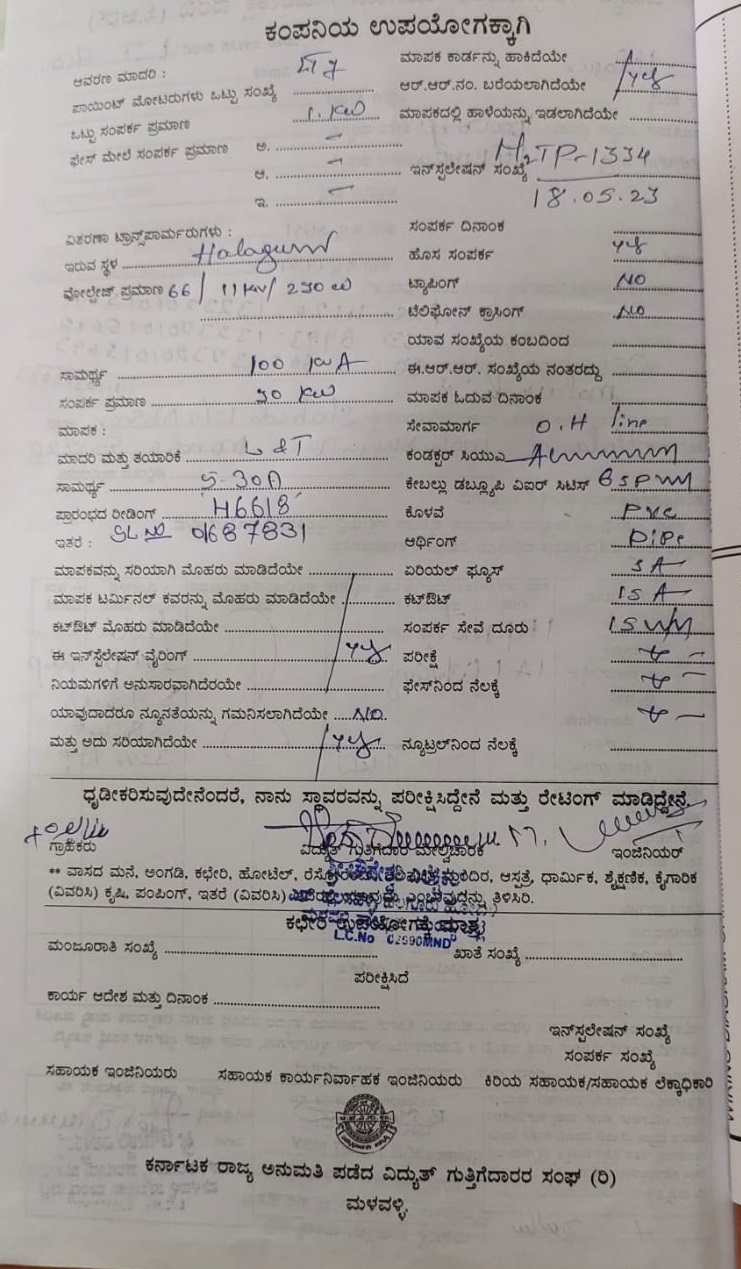 ಕಂಪನಿಯ ಉಪಯೋಗಕ್ಕಾಗಿ
ಆವರಣ ಮಾದರಿ :
ಮಾಪಕ ಕಾರ್ಡನ್ನು ಹಾಕಿದೆಯೇ
ಪಾಯಿಂಟ್ ಮೋಟರುಗಳು ಒಟ್ಟು ಸಂಖ್ಯೆ
ಆರ್.ಆರ್.ನಂ. ಬರೆಯಲಾಗಿದೆಯೇ yes
ಒಟ್ಟು ಸಂಪರ್ಕ ಪ್ರಮಾಣ 1. KW
ಮಾಪಕದಲ್ಲಿ ಹಾಳೆಯನ್ನು ಇಡಲಾಗಿದೆಯೇ
ಫೇಸ್ ಮೇಲೆ ಸಂಪರ್ಕ ಪ್ರಮಾಣ ಅ. –
ಆ. –
ಇನ್‌ಸ್ಟಲೇಷನ್ ಸಂಖ್ಯೆ H2TP-1334
ಇ. –
18.05.23
ವಿತರಣಾ ಟ್ರಾನ್ಸ್‌ಪಾರ್ಮರುಗಳು :
ಸಂಪರ್ಕ ದಿನಾಂಕ
ಇರುವ ಸ್ಥಳ Halagur
ಹೊಸ ಸಂಪರ್ಕ yes
ವೋಲ್ಟೇಜ್ ಪ್ರಮಾಣ 66 / 11 KV/
ಟ್ಯಾಪಿಂಗ್ NO
ಟೆಲಿಫೋನ್ ಕ್ರಾಸಿಂಗ್ NO
ಯಾವ ಸಂಖ್ಯೆಯ ಕಂಬದಿಂದ
ಸಾಮರ್ಥ್ಯ 100 KVA
ಈ.ಆರ್.ಆರ್. ಸಂಖ್ಯೆಯ ನಂತರದ್ದು
ಸಂಪರ್ಕ ಪ್ರಮಾಣ 90 KW
ಮಾಪಕ ಓದುವ ದಿನಾಂಕ
ಮಾಪಕ :
ಸೇವಾಮಾರ್ಗ O.H line
ಮಾದರಿ ಮತ್ತು ತಯಾರಿಕೆ L & T
ಕಂಡಕ್ಟರ್ ಸಿಯುಎ Aluminium
ಸಾಮರ್ಥ್ಯ 5-30A
ಕೇಬಲ್ಲು ಡಬ್ಲ್ಯೂಪಿ ವಿಐರ್ ಸಿಟಿಸ್
ಪ್ರಾರಂಭದ ರೀಡಿಂಗ್ H6618
ಕೊಳವೆ PVC
ಇತರೆ : SL NO 01687831
ಆರ್ಥಿಂಗ್ Pipe
ಮಾಪಕವನ್ನು ಸರಿಯಾಗಿ ಮೊಹರು ಮಾಡಿದೆಯೇ
ಏರಿಯಲ್ ಫ್ಯೂಸ್ 5 A
ಮಾಪಕ ಟರ್ಮಿನಲ್ ಕವರನ್ನು ಮೊಹರು ಮಾಡಿದೆಯೇ
ಕಟ್‌ಔಟ್ 15 A
ಕಟ್‌ಔಟ್ ಮೊಹರು ಮಾಡಿದೆಯೇ
ಸಂಪರ್ಕ ಸೇವೆ ದೂರು
ಈ ಇನ್‌ಸ್ಟೆಲೇಷನ್ ವೈರಿಂಗ್ yes
ಪರೀಕ್ಷೆ
ನಿಯಮಗಳಿಗೆ ಅನುಸಾರವಾಗಿದೆರಯೇ
ಫೇಸ್‌ನಿಂದ ನೆಲಕ್ಕೆ
ಯಾವುದಾದರೂ ನ್ಯೂನತೆಯನ್ನು ಗಮನಿಸಲಾಗಿದೆಯೇ NO
ಮತ್ತು ಅದು ಸರಿಯಾಗಿದೆಯೇ yes
ನ್ಯೂಟ್ರಲ್‌ನಿಂದ ನೆಲಕ್ಕೆ
ಧೃಡೀಕರಿಸುವುದೇನೆಂದರೆ, ನಾನು ಸ್ಥಾವರವನ್ನು ಪರೀಕ್ಷಿಸಿದ್ದೇನೆ ಮತ್ತು ರೇಟಿಂಗ್ ಮಾಡಿದ್ದೇನೆ.
ಗ್ರಾಹಕರು
ವಿದ್ಯುತ್ ಗುತ್ತಿಗೆದಾರ ಮೇಲ್ವಿಚಾರಕ
ಇಂಜಿನಿಯರ್
** ವಾಸದ ಮನೆ, ಅಂಗಡಿ, ಕಛೇರಿ, ಹೋಟೆಲ್, ಆಸ್ಪತ್ರೆ, ಧಾರ್ಮಿಕ, ಶೈಕ್ಷಣಿಕ, ಕೈಗಾರಿಕ
(ವಿವರಿಸಿ) ಕೃಷಿ, ಪಂಪಿಂಗ್, ಇತರೆ (ವಿವರಿಸಿ) ಎಂಬುದನ್ನು ತಿಳಿಸಿರಿ.
ಕಛೇರಿ ಉಪಯೋಗಕ್ಕೆ ಮಾತ್ರ
L.C.No 02590MND
ಮಂಜೂರಾತಿ ಸಂಖ್ಯೆ
ಖಾತೆ ಸಂಖ್ಯೆ
ಪರೀಕ್ಷಿಸಿದೆ
ಕಾರ್ಯ ಆದೇಶ ಮತ್ತು ದಿನಾಂಕ
ಇನ್‌ಸ್ಟಲೇಷನ್ ಸಂಖ್ಯೆ
ಸಂಪರ್ಕ ಸಂಖ್ಯೆ
ಸಹಾಯಕ ಇಂಜಿನಿಯರು
ಸಹಾಯಕ ಕಾರ್ಯನಿರ್ವಾಹಕ ಇಂಜಿನಿಯರು
ಕಿರಿಯ ಸಹಾಯಕ/ಸಹಾಯಕ ಲೆಕ್ಕಾಧಿಕಾರಿ
ಕರ್ನಾಟಕ ರಾಜ್ಯ ಅನುಮತಿ ಪಡೆದ ವಿದ್ಯುತ್ ಗುತ್ತಿಗೆದಾರರ ಸಂಘ (ರಿ)
ಮಳವಳ್ಳಿ.